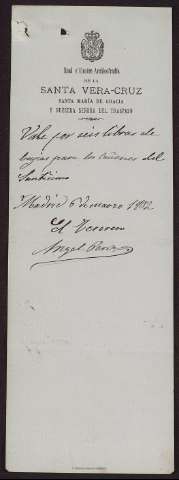 Real é Ilustre Archicofradía
DE LA
SANTA VERA-CRUZ
SANTA MARÍA DE GRACIA
Y NUESTRA SEÑORA DEL TRASPASO
Vale por seis libras de
bujias para los turnos del
Santísimo
Madrid 6 de marzo 1892
El Tesorero
Angel